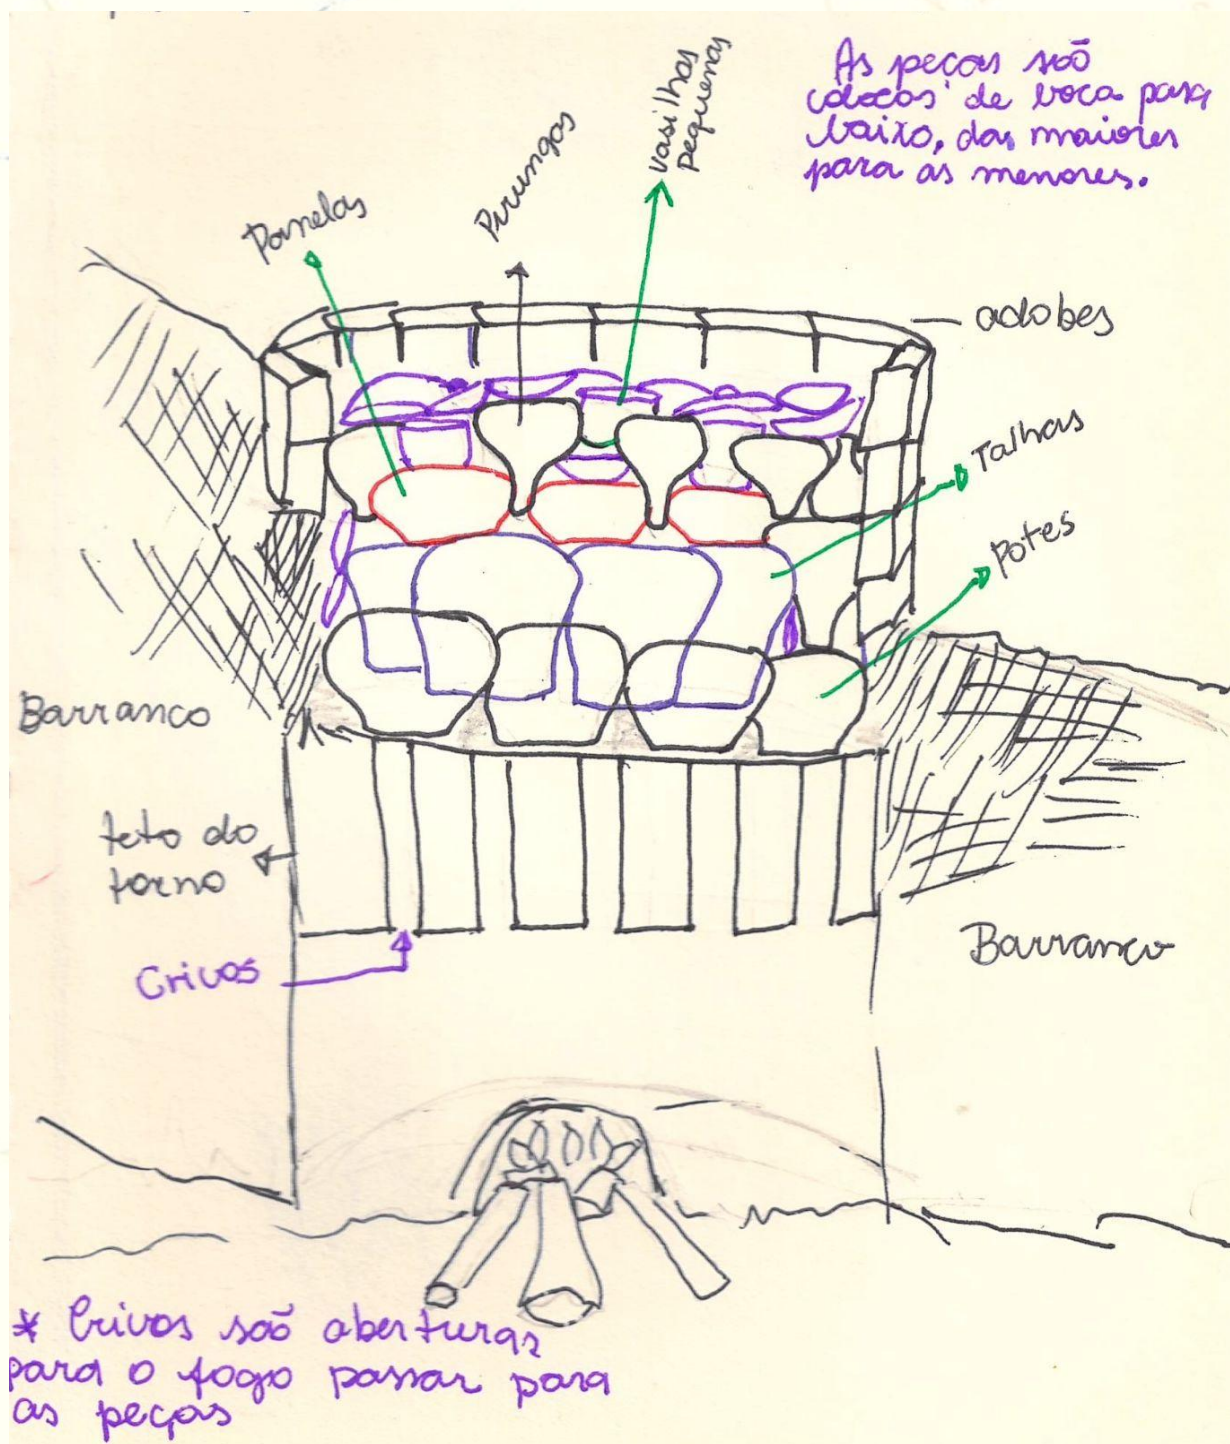 As peças são
colocas de boca para
baixo, das maiores
para as menores.
vasilhas
pequenas
Pirungas
Panelas
adobes
Talhas
Potes
Barranco
teto do
forno
Crivos
Barranco
* Crivos são aberturas
para o fogo passar para
as peças